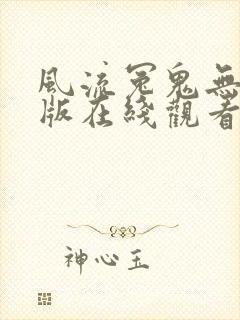 風流冤鬼無
版在綫觀看
神心玉